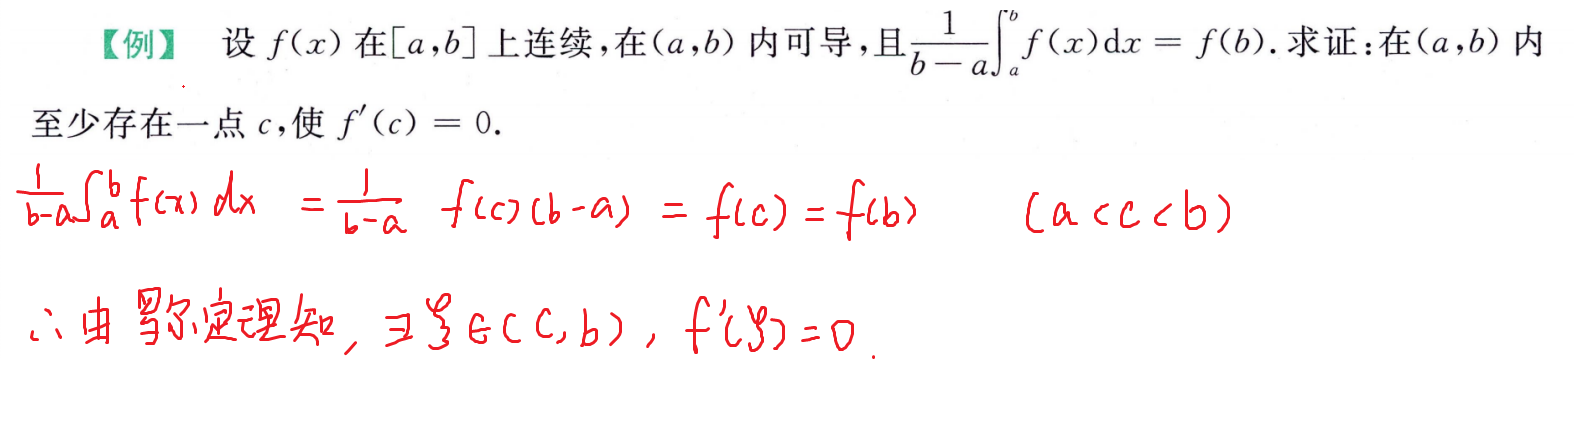 【例】 设 f(x) 在[a,b]上连续,在(a,b) 内可导,且\frac{1}{b-a}\int_a^b f(x)dx = f(b). 求证:在(a,b) 内
至少存在一点 c,使 f′(c) = 0.
\frac{1}{b-a}\int_a^b f(x) dx = \frac{1}{b-a} f(c)(b-a) = f(c) = f(b) (a<c<b)
∴由罗尔定理知, ∃ξ∈(c,b), f′(ξ)=0.